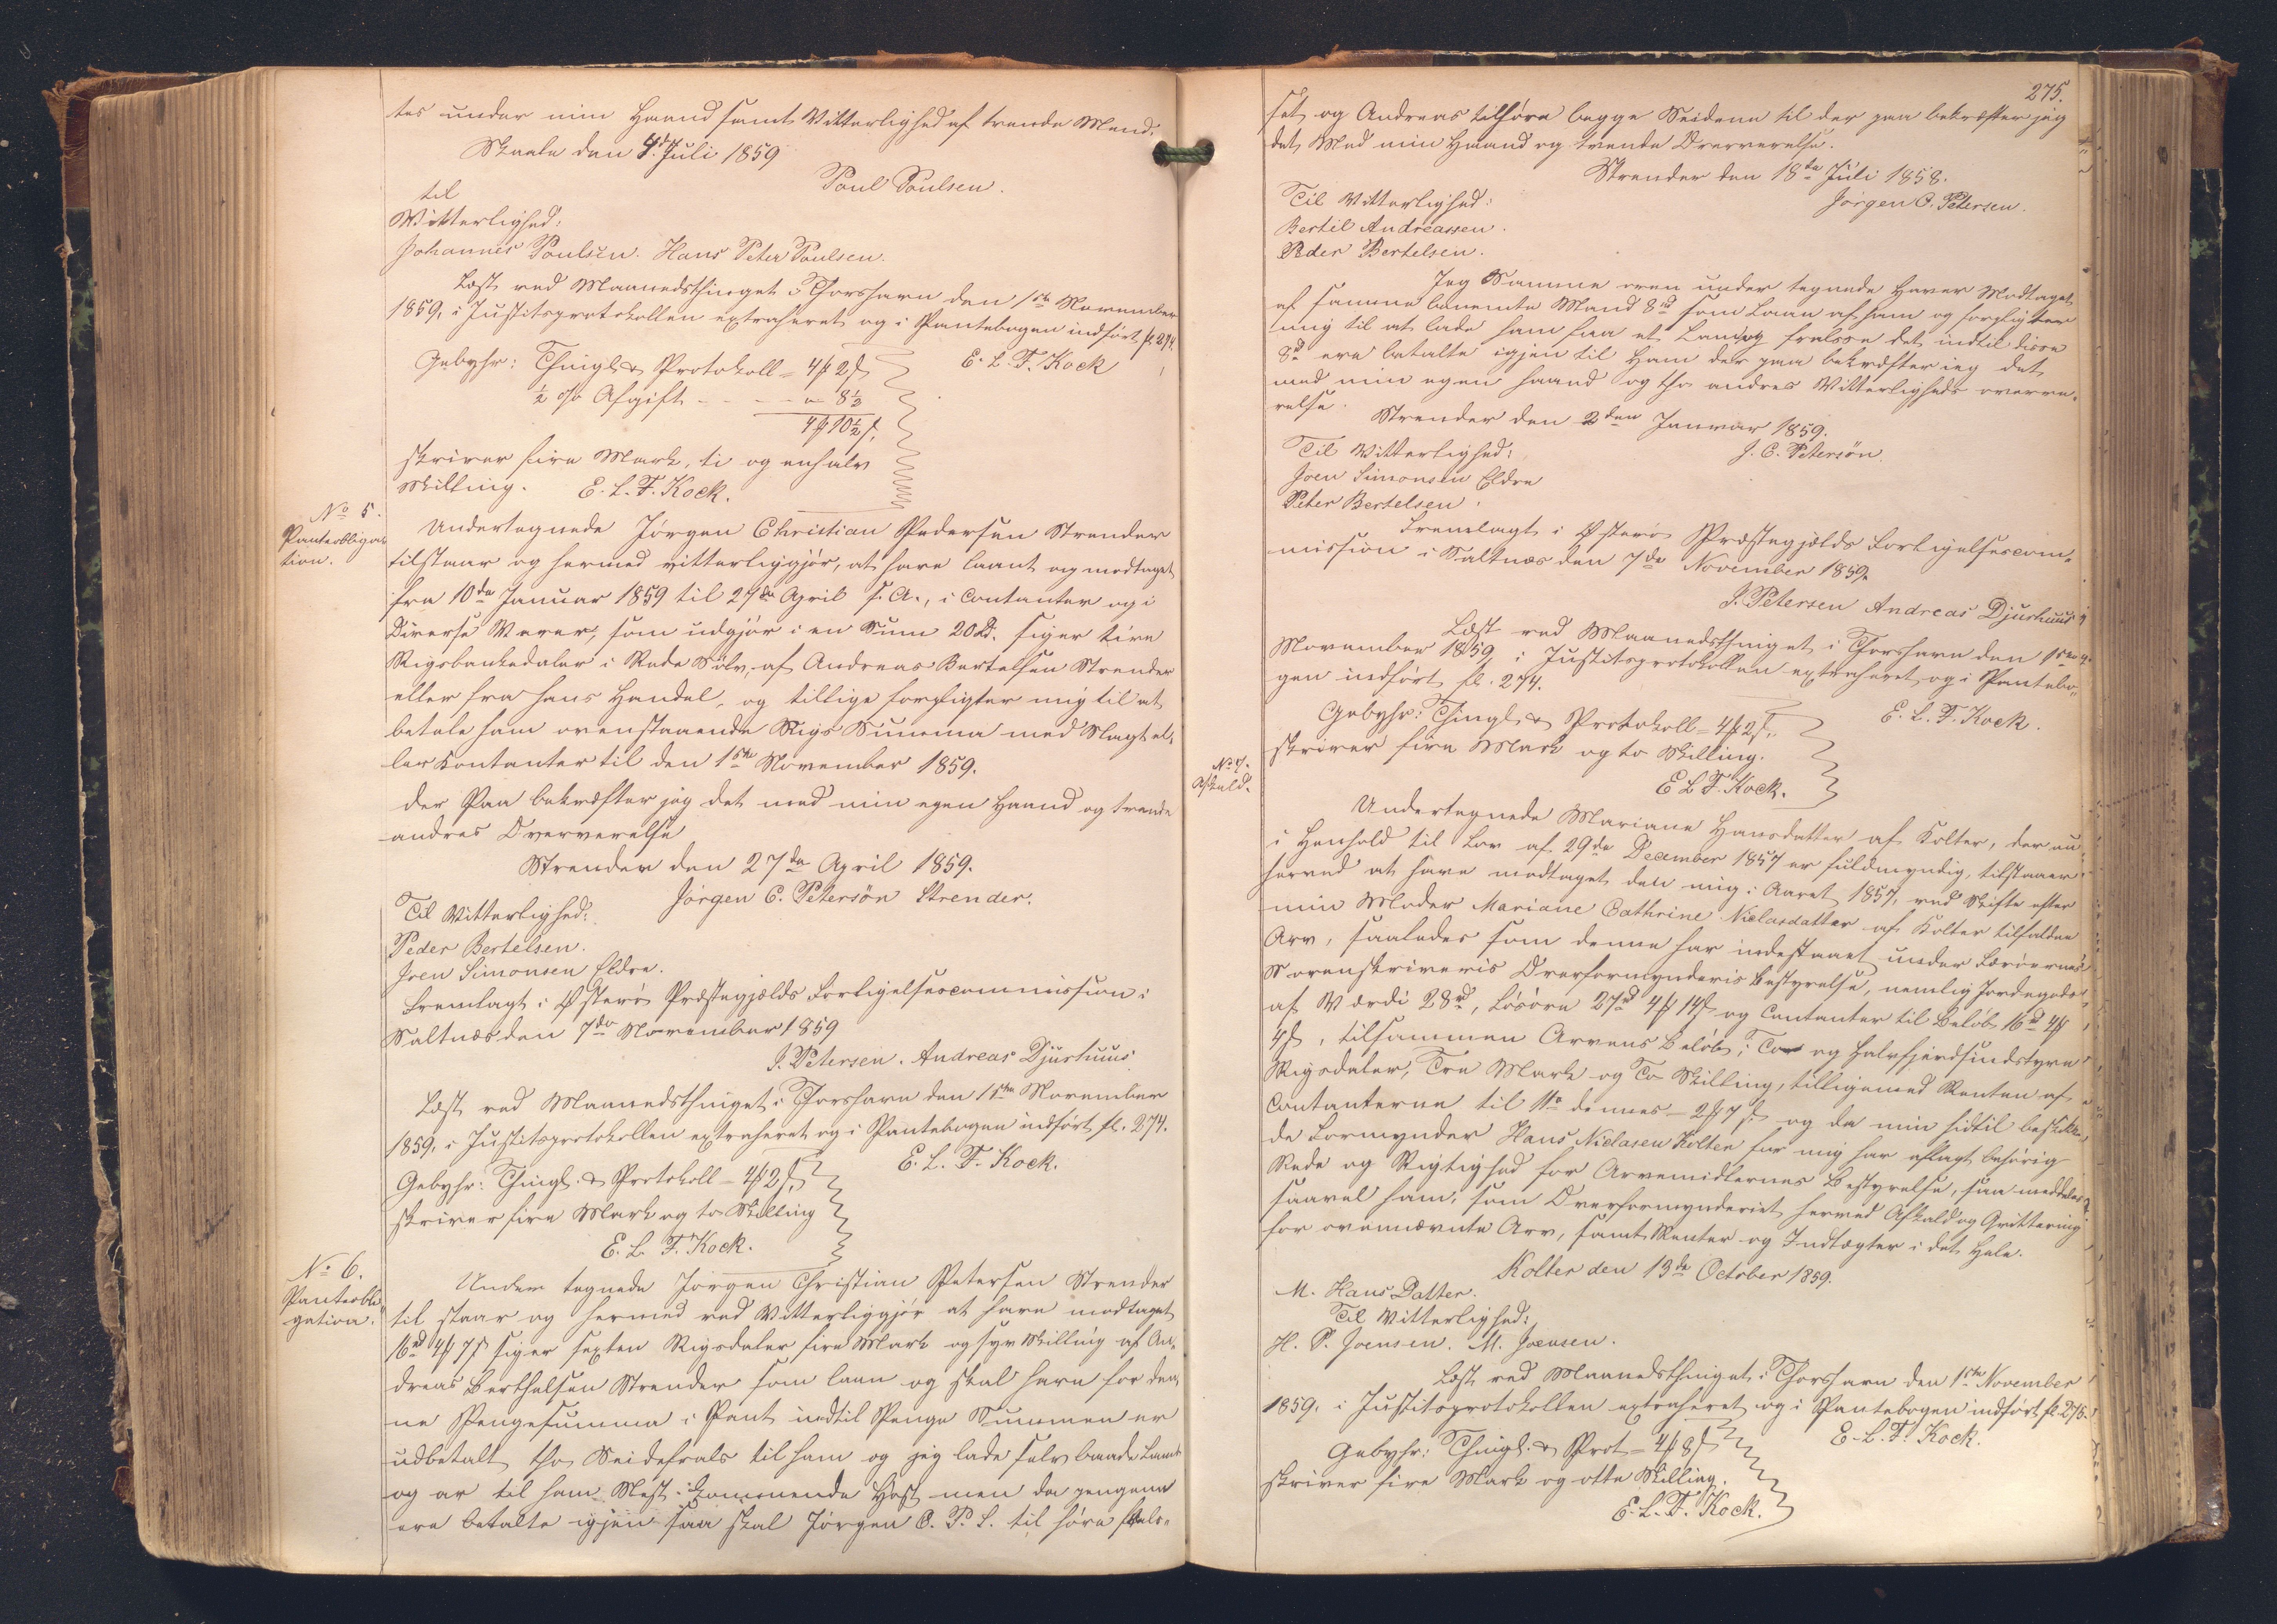 tes under min Haand samt Vitterlighed af tvende Mend.
Skaale den 4de Juli 1859
Poul Poulsen.
til
Vitterlighed:
Johannes Poulsen. Hans Peter Poulsen.
Læst ved Maanedsthinget i Thorshavn den 1ste November
1859, i Justitsprotokollen extraheret og i Pantebogen indført fl. 274.
E. L. F. Kock
Gebyhr: Thingl. & Protokoll = 4 ₰ 2 ß
½ % Afgift - - - - „ 8½
4 ₰ 10½ ß.
skriver fire Mark, ti og en halv
Skilling. E. L. F. Kock.
No 5.
Panteobliga
tion.
Undertegnede Jørgen Christian Pedersen Strender
tilstaar og hermed vitterliggjør, at have laant og modtaget
fra 10de Januar 1859 til 27de April s. A., i Contanter og i
Diverse Varer, som udgjør i en Sum 20 Rd. siger tive
Rigsbankedaler i Rede Sølv, af Andreas Bertelsen Strender
eller fra hans Handel, og tillige forpligter mig til at
betale ham ovenstaaende Rigs Summa med Slagt el-
ler Kontanter til den 1ste November 1859.
der Paa bekræfter jeg det med min egen Haand og tvende
andres Overværelse
Strender den 27de April 1859.
Jørgen C. Petersön Strender.
Til Vitterlighed:
Peder Bertelsen.
Joen Simonsen Eldre.
Fremlagt i Østerø Præstegjælds Forligelsescommission i
Saltnæs den 7de November 1859
J. Petersen. Andreas Djurhuus
Læst ved Maanedsthinget i Thorshavn den 15de November
1859, i Justitsprotokollen extraheret og i Pantebogen indført fl. 274.
E. L. F. Kock.
Gebyhr: Thingl. & Protokoll = 4 ₰ 2 ß
skriver fire Mark og to Skilling
E. L. F. Kock.
No 6.
Panteobli
gation.
Under tegnede Jørgen Christian Petersen Strender
til staar og hermed ved Vitterliggjør at have modtaget
16 rd 4 ₰ 7 ß siger sexten Rigsdaler fire Mark og syv Skilling af An-
dreas Berthelsen Strender som laan og skal have for den-
ne Pengesumma i Pant indtil Penge Summen er
udbetalt tho Seidefrals til ham og jeg lade selv baade Lam
og ar til ham Nest Kommende Høst men da pengene
ere betalte igjen saa skal Jørgen C. P. S. til høre
275.
set og Andreas tilhøre begge Seidene til der paa bekræfter jeg
det Med min Haand og tvende Oververelse.
Strender den 18de Juli 1858.
Jørgen C. Petersen.
Til Vitterlighed:
Bertil Andreassen.
Peder Bertelsen.
Jeg Samme oven under tegnede Haver Modtaget
af samme benemte Mand 8 rd som Laan af ham og forpligter
mig til at lade ham faa et Lamog frelsse det indtil disse
8 rd ere betalte igjen til Ham der paa bekræfter ieg det
med min egen haand og tho andres Vitterligheds overve-
relse.
Strender den 2den Januar 1859.
J. C. Petersön.
Til Vitterlighed:
Joen Simonsen Eldre
Peter Bertelsen.
Fremlagt i Østerø Præstegjælds Forligelsescom-
mission i Saltnæs den 7de November 1859.
J. Petersen Andreas Djurhuus
Læst ved Maanedsthinget i Thorshavn den 15de
November 1859 i Justitsprotokollen extraheret og i Pantebo-
gen indført fl. 274.
E. L. F. Kock.
Gebyhr: Thingl. & Protokoll = 4 ₰ 2 ß.
skriver fire Mark og to Skilling.
E L F. Kock.
No 7.
Afkald.
Undertegnede Mariane Hansdatter af Kolter, der nu
i Henhold til Lov af 29de December 1857 er fuldmyndig, tilstaaer
herved at have modtaget den mig i Aaret 1857, ved Skifte efter
min Moder Mariane Cathrine Nielasdatter af Kolter tilfaldne
Arv, saaledes som denne har indestaaet under Færöernes
Sorenskriveris Overformynderis Bestyrelse, nemlig Jordegods
af Værdi 28 rd, Løsøre 27 rd 4 ₰ 14 ß og Contanter til Beløb 16 rd 4 ₰
4 ß, tilsammen Arvens Beløb, To og Halvfjerdsindstyve
Rigsdaler, Tre Mark og To Skilling, tilligemed Renten af
Contanterne til 11te dennes - 2 ₰ 7 ß og da min hidtil beskikke-
de Formynder Hans Nielasen Kolter for mig har aflagt behørig
Rede og Rigtighed for Arvemidlernes Bestyrelse, saa meddeles
saavel ham, som Overformynderiet herved Afkald og Qvittering
for ovennævnte Arv, samt Renter og Indtægter i det Hele.
Kolter den 13de October 1859.
M. Hans Datter.
Til Vitterlighed:
H. P. Joensen. M. Joensen.
Læst ved Maanedsthinget i Thorshavn den 15de November
1859, i Justitsprotokollen extraheret og i Pantebogen indført fl. 275.
E. L. F. Kock.
Gebyhr: Thingl. & Prot = 4 ₰ 8 ß
skriver fire Mark og otte Skilling.
E. L. F. Kock.